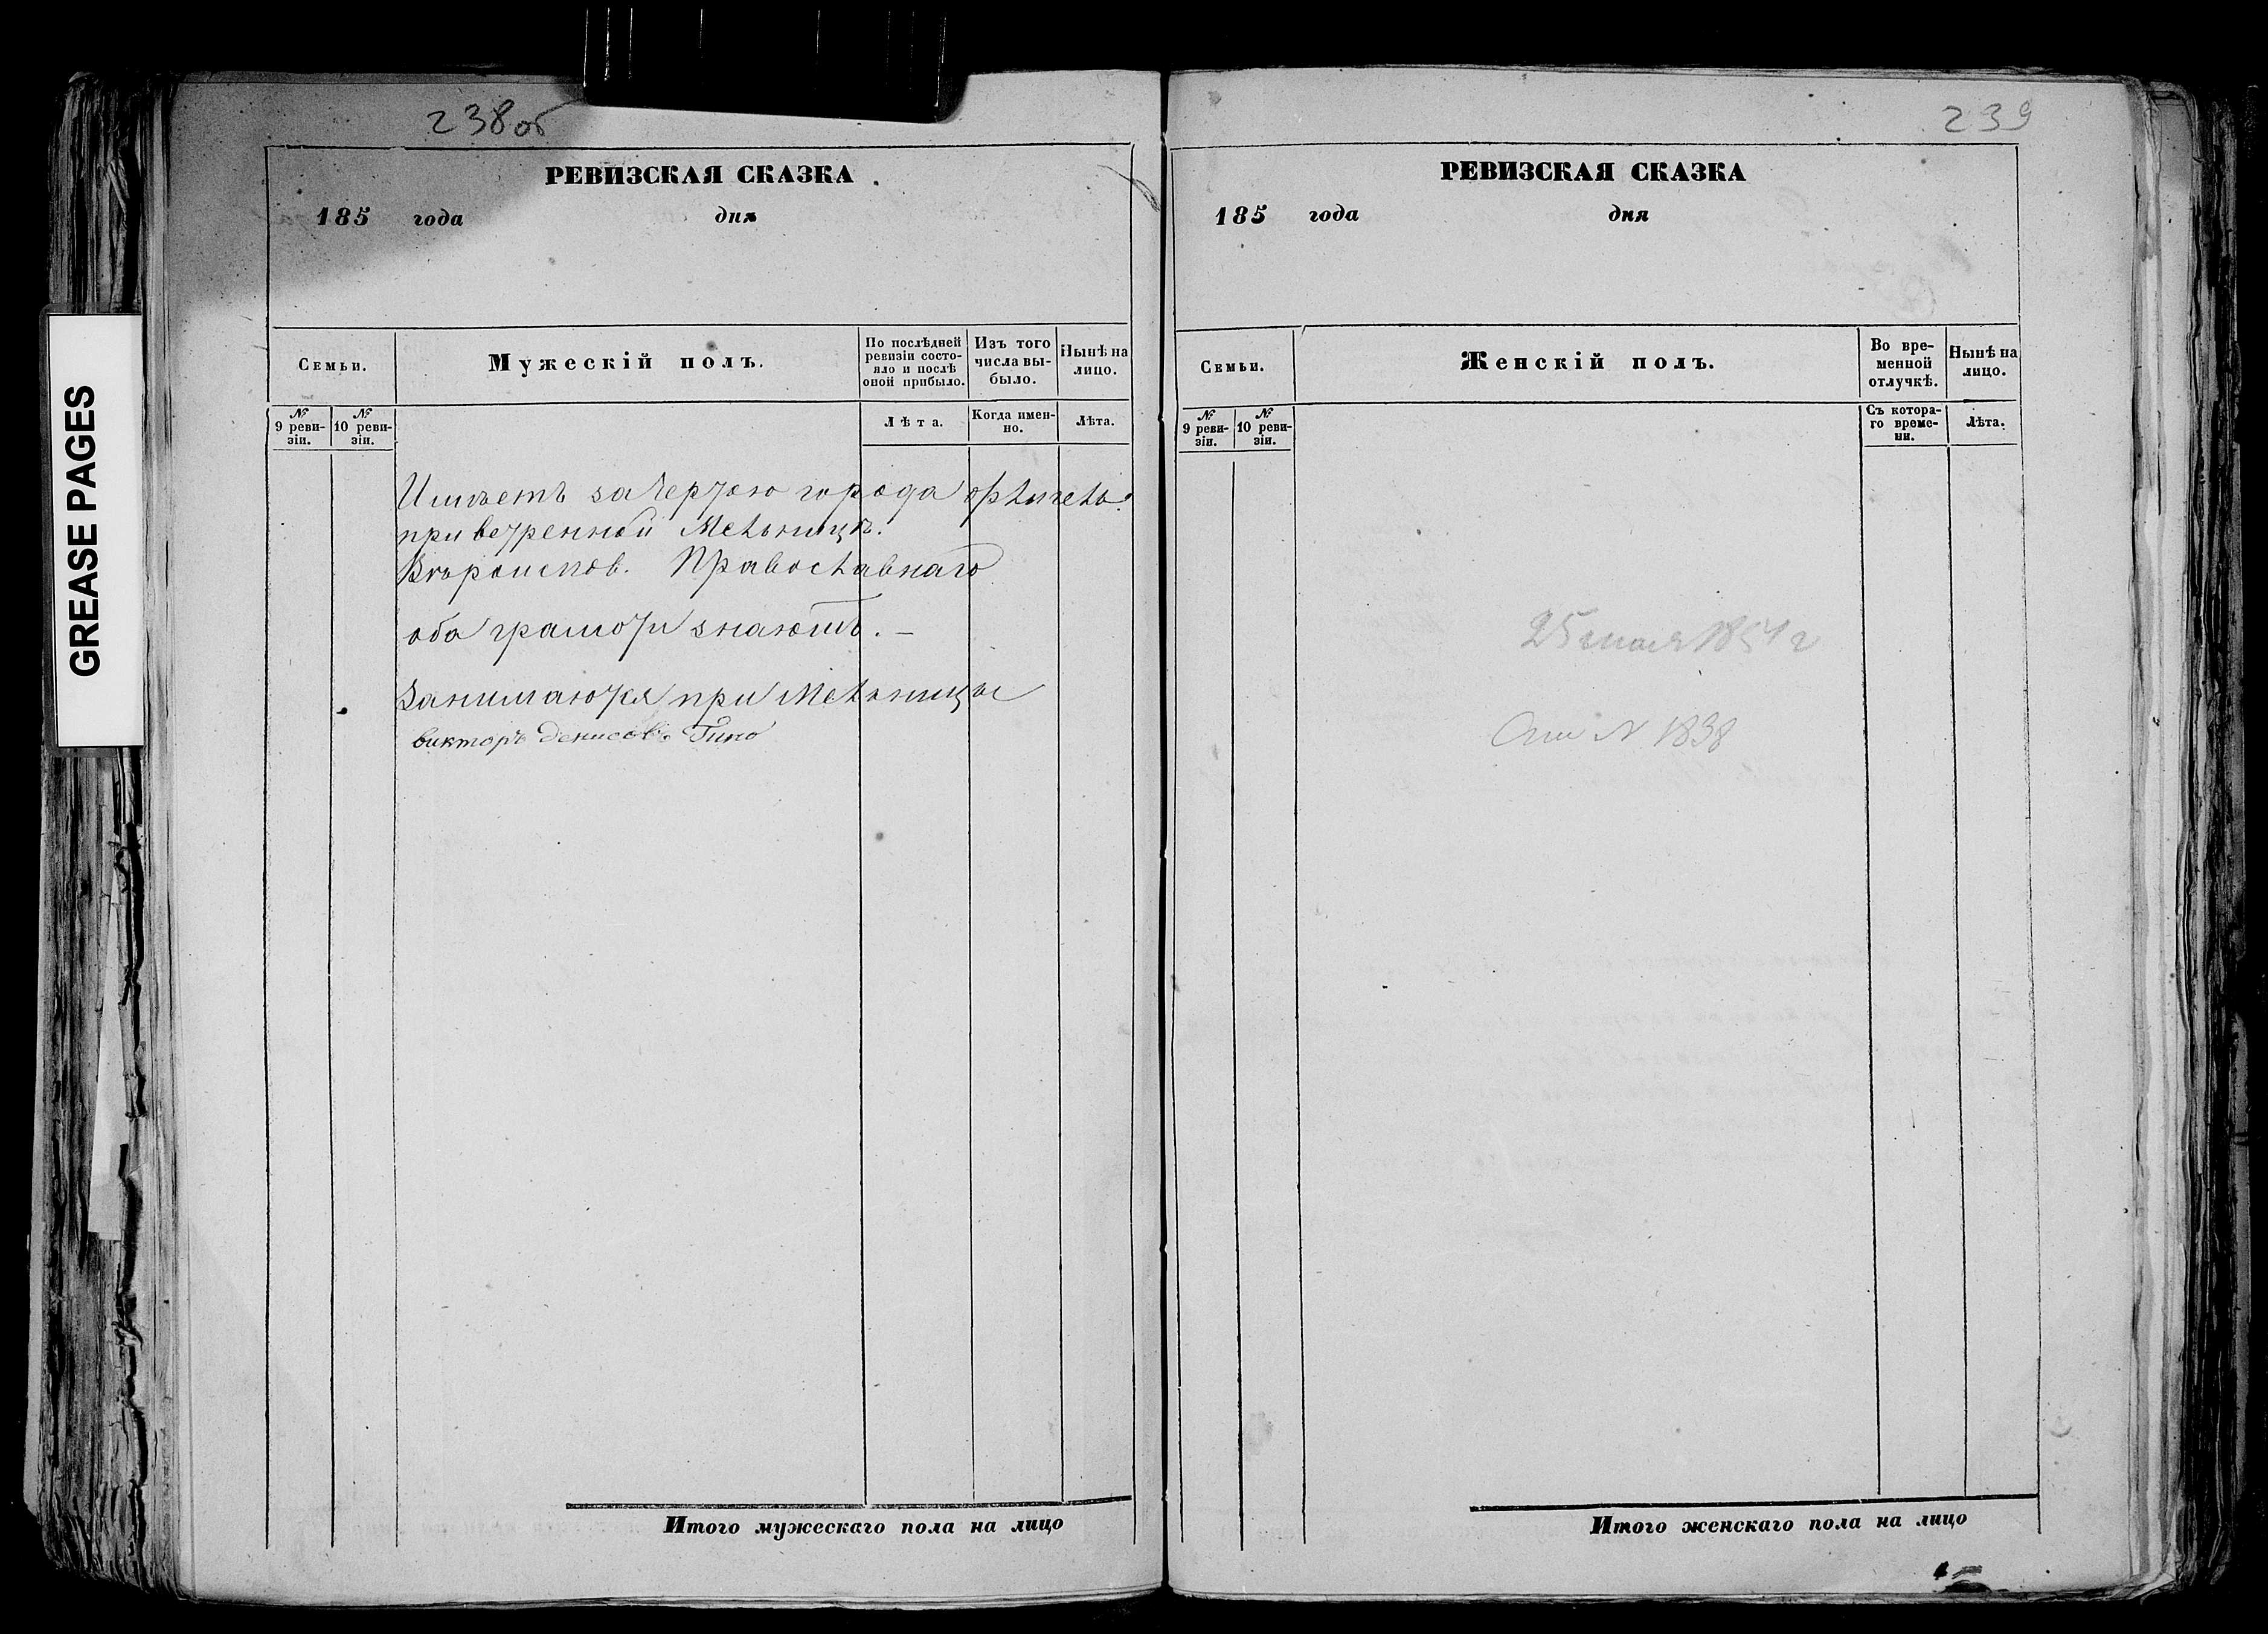 238об
РЕВИЗСКАЯ СКАЗКА
185 года дня
Семьи.
Мужескій полъ.
По послѣдней ревизіи состояло и послѣ оной прибыло.
Изъ того числа выбыло.
Нынѣ на лицо.
№ 9 ревизіи.
№ 10 ревизіи.
Лѣта.
Когда именно.
Лѣта.
Имѣетъ за чертою города флигель
при ветренной Мельницѣ.
Вѣроиспов. Православнаго
оба грамоти знаютъ. —
Занимаются при Мельницы
викторъ денисовъ Гино
Итого мужескаго пола на лицо
239
РЕВИЗСКАЯ СКАЗКА
185 года дня
Семьи.
Женскій полъ.
Во временной отлучкѣ.
Нынѣ на лицо.
№ 9 ревизіи.
№ 10 ревизіи.
Съ котораго времени.
Лѣта.
25 1854 г
N 1838
Итого женскаго пола на лицо
GREASE PAGES